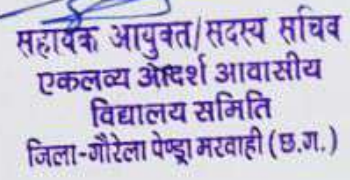 सहायक आयुक्त/सदस्य सचिव
एकलव्य आदर्श आवासीय
विद्यालय समिति
जिला-गौरेला पेण्ड्रा मरवाही (छ.ग.)